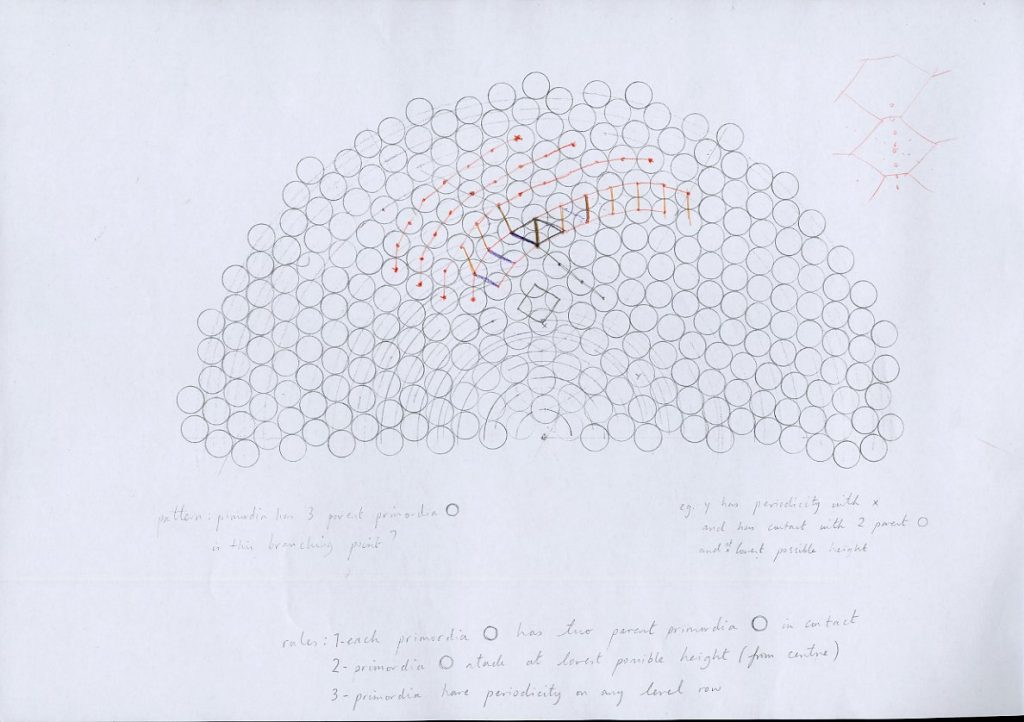 pattern: primordia has 3 parent primordia
is this branching point?
eg. y has periodicity with x
and has contact with 2 parent
and at lowest possible height
rules: 1-each primordia has two parent primordia in contact
2-primordia stack at lowest possible height (from centre)
3-primordia have periodicity on any level row